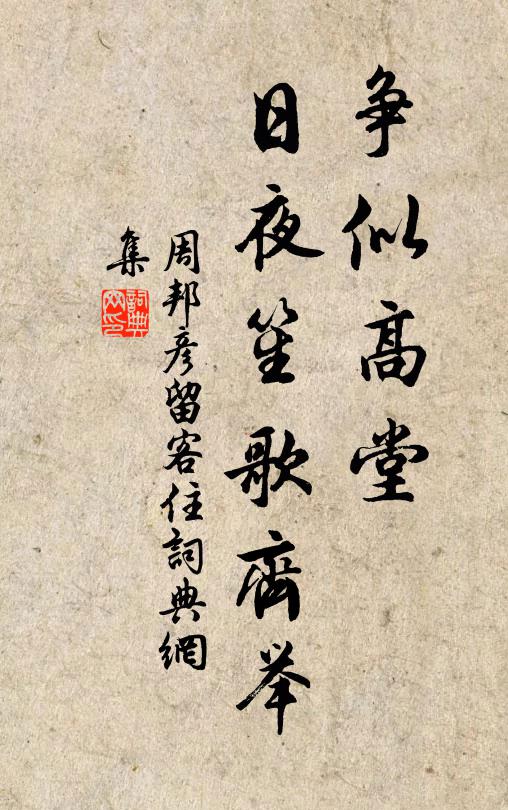 争似高堂
日夜笙歌齊举
周邦彦留客住詞典網
集
詞典
网印